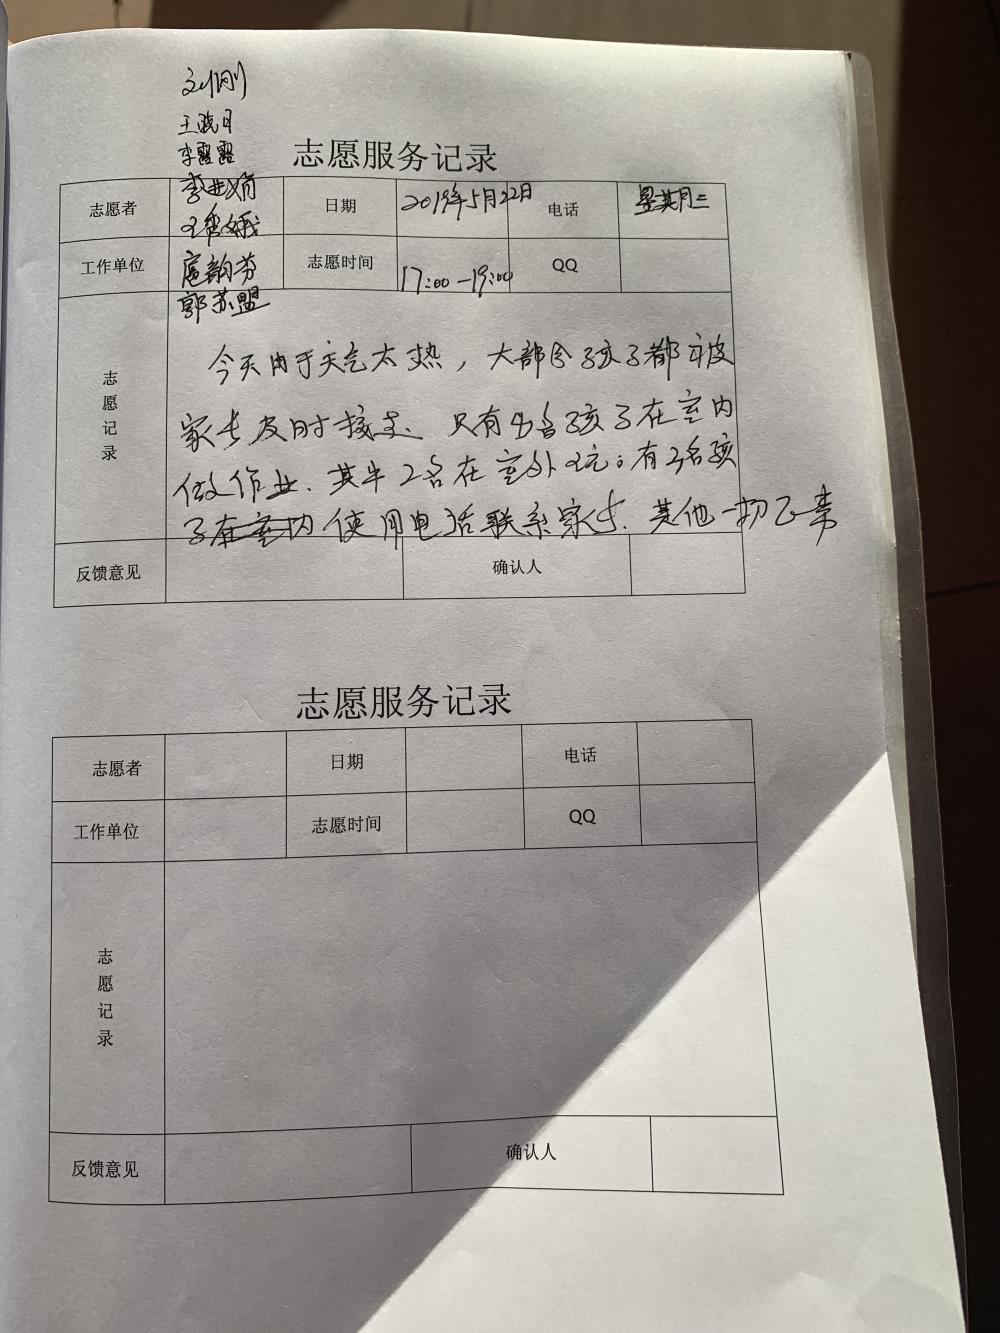 刘刚
王晓月
李露露
志愿服务记录
志愿者 李亚娟 日期 2019年5月22日 电话 星期三
王秀娥
工作单位 扈韵芬 志愿时间 17:00-19:00 QQ
郭苏盟
志愿记录
今天由于天气太热，大部分孩子都被
家长及时接走、只有4名孩子在室内
做作业、其中2名在室外玩。有2名孩
子在室内使用电话联系家长、其他一切正常
反馈意见 确认人
志愿服务记录
志愿者 日期 电话
工作单位 志愿时间 QQ
志愿记录
反馈意见 确认人